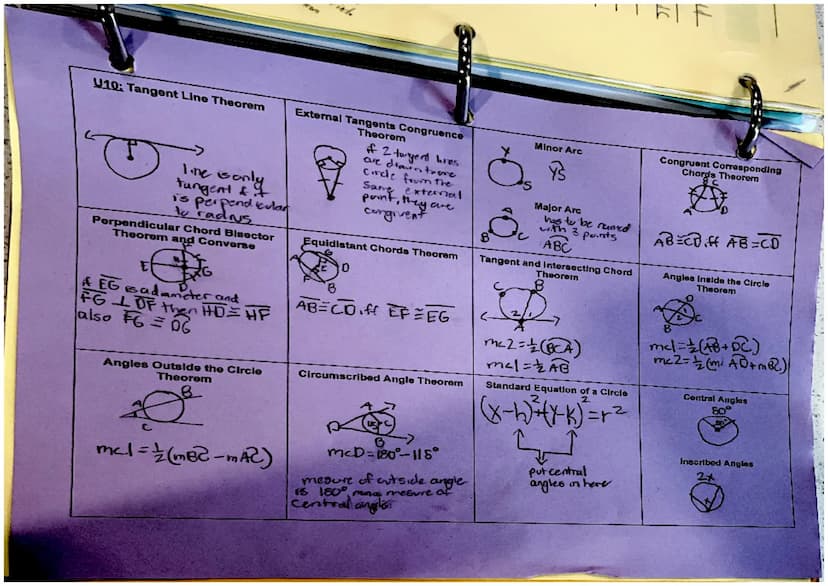 U10: Tangent Line Theorem
line is only
tangent if it
is perpendicular
to radius
External Tangents Congruence
Theorem
if 2 tangent lines
are drawn to one
circle from the
same external
point, they are
congruent
Minor Arc
Y
S
YS
Major Arc
A
B
C
has to be named
with 3 points
ABC
Congruent Corresponding
Chords Theorem
B C
A D
AB≅CD iff AB≅CD
Perpendicular Chord Bisector
Theorem and Converse
E
F
H
G
D
if EG is a diameter and
EG ⊥ DF then HD ≅ HF
also FG ≅ DG
Equidistant Chords Theorem
C
G
A
E
D
F
B
AB≅CD iff EF≅EG
Tangent and Intersecting Chord
Theorem
C
B
2 1
A
m<2=½(BCA)
m<1=½AB
Angles Inside the Circle
Theorem
D
A
2
1
C
B
m<1=½(AB+DC)
m<2=½(mAD+mBC)
Angles Outside the Circle
Theorem
B
A
1
C
m<1=½(mBC-mAC)
Circumscribed Angle Theorem
A
D
115
C
B
m<D=180°-115°
mesure of outside angle
is 180° minus mesure of
central angle
Standard Equation of a Circle
(x-h)²+(y-k)²=r²
put central
angles in here
Central Angles
80°
80°
Inscribed Angles
2x
x